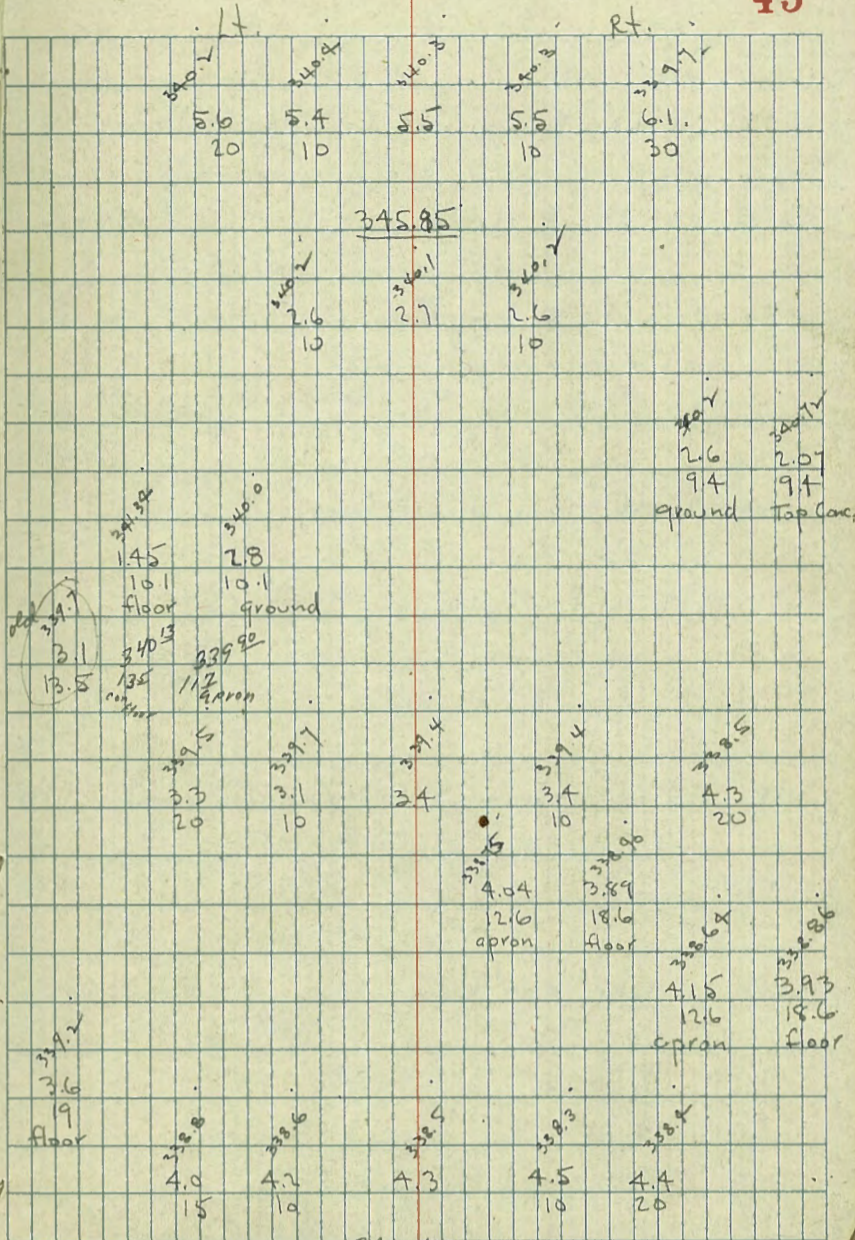 45
Lt. Rt.
340.2 340.4 340.3 340.3 339.7
5.6 5.4 5.5 5.5 6.1.
20 10 10 30
345.85
340.2 340.1 340.2
2.6 2.7 2.6
10 10
340.2 340.72
2.6 2.07
9.4 9.4
ground Top Conc.
341.34 340.0
1.45 2.8
10.1 10.1
floor ground
old 339.7
3.1 340.13 339.90
13.5 135 112
floor apron
339.5 339.7 339.4 339.4 338.5
3.3 3.1 3.4 3.4 4.3
20 10 10 20
338.75 338.90
4.04 3.89
12.6 18.6
apron floor
338.64 338.86
4.15 3.93
12.6 18.6
apron floor
339.2
3.6
19
floor
338.8 338.6 338.5 338.3 338.4
4.0 4.2 4.3 4.5 4.4
15 10 10 20